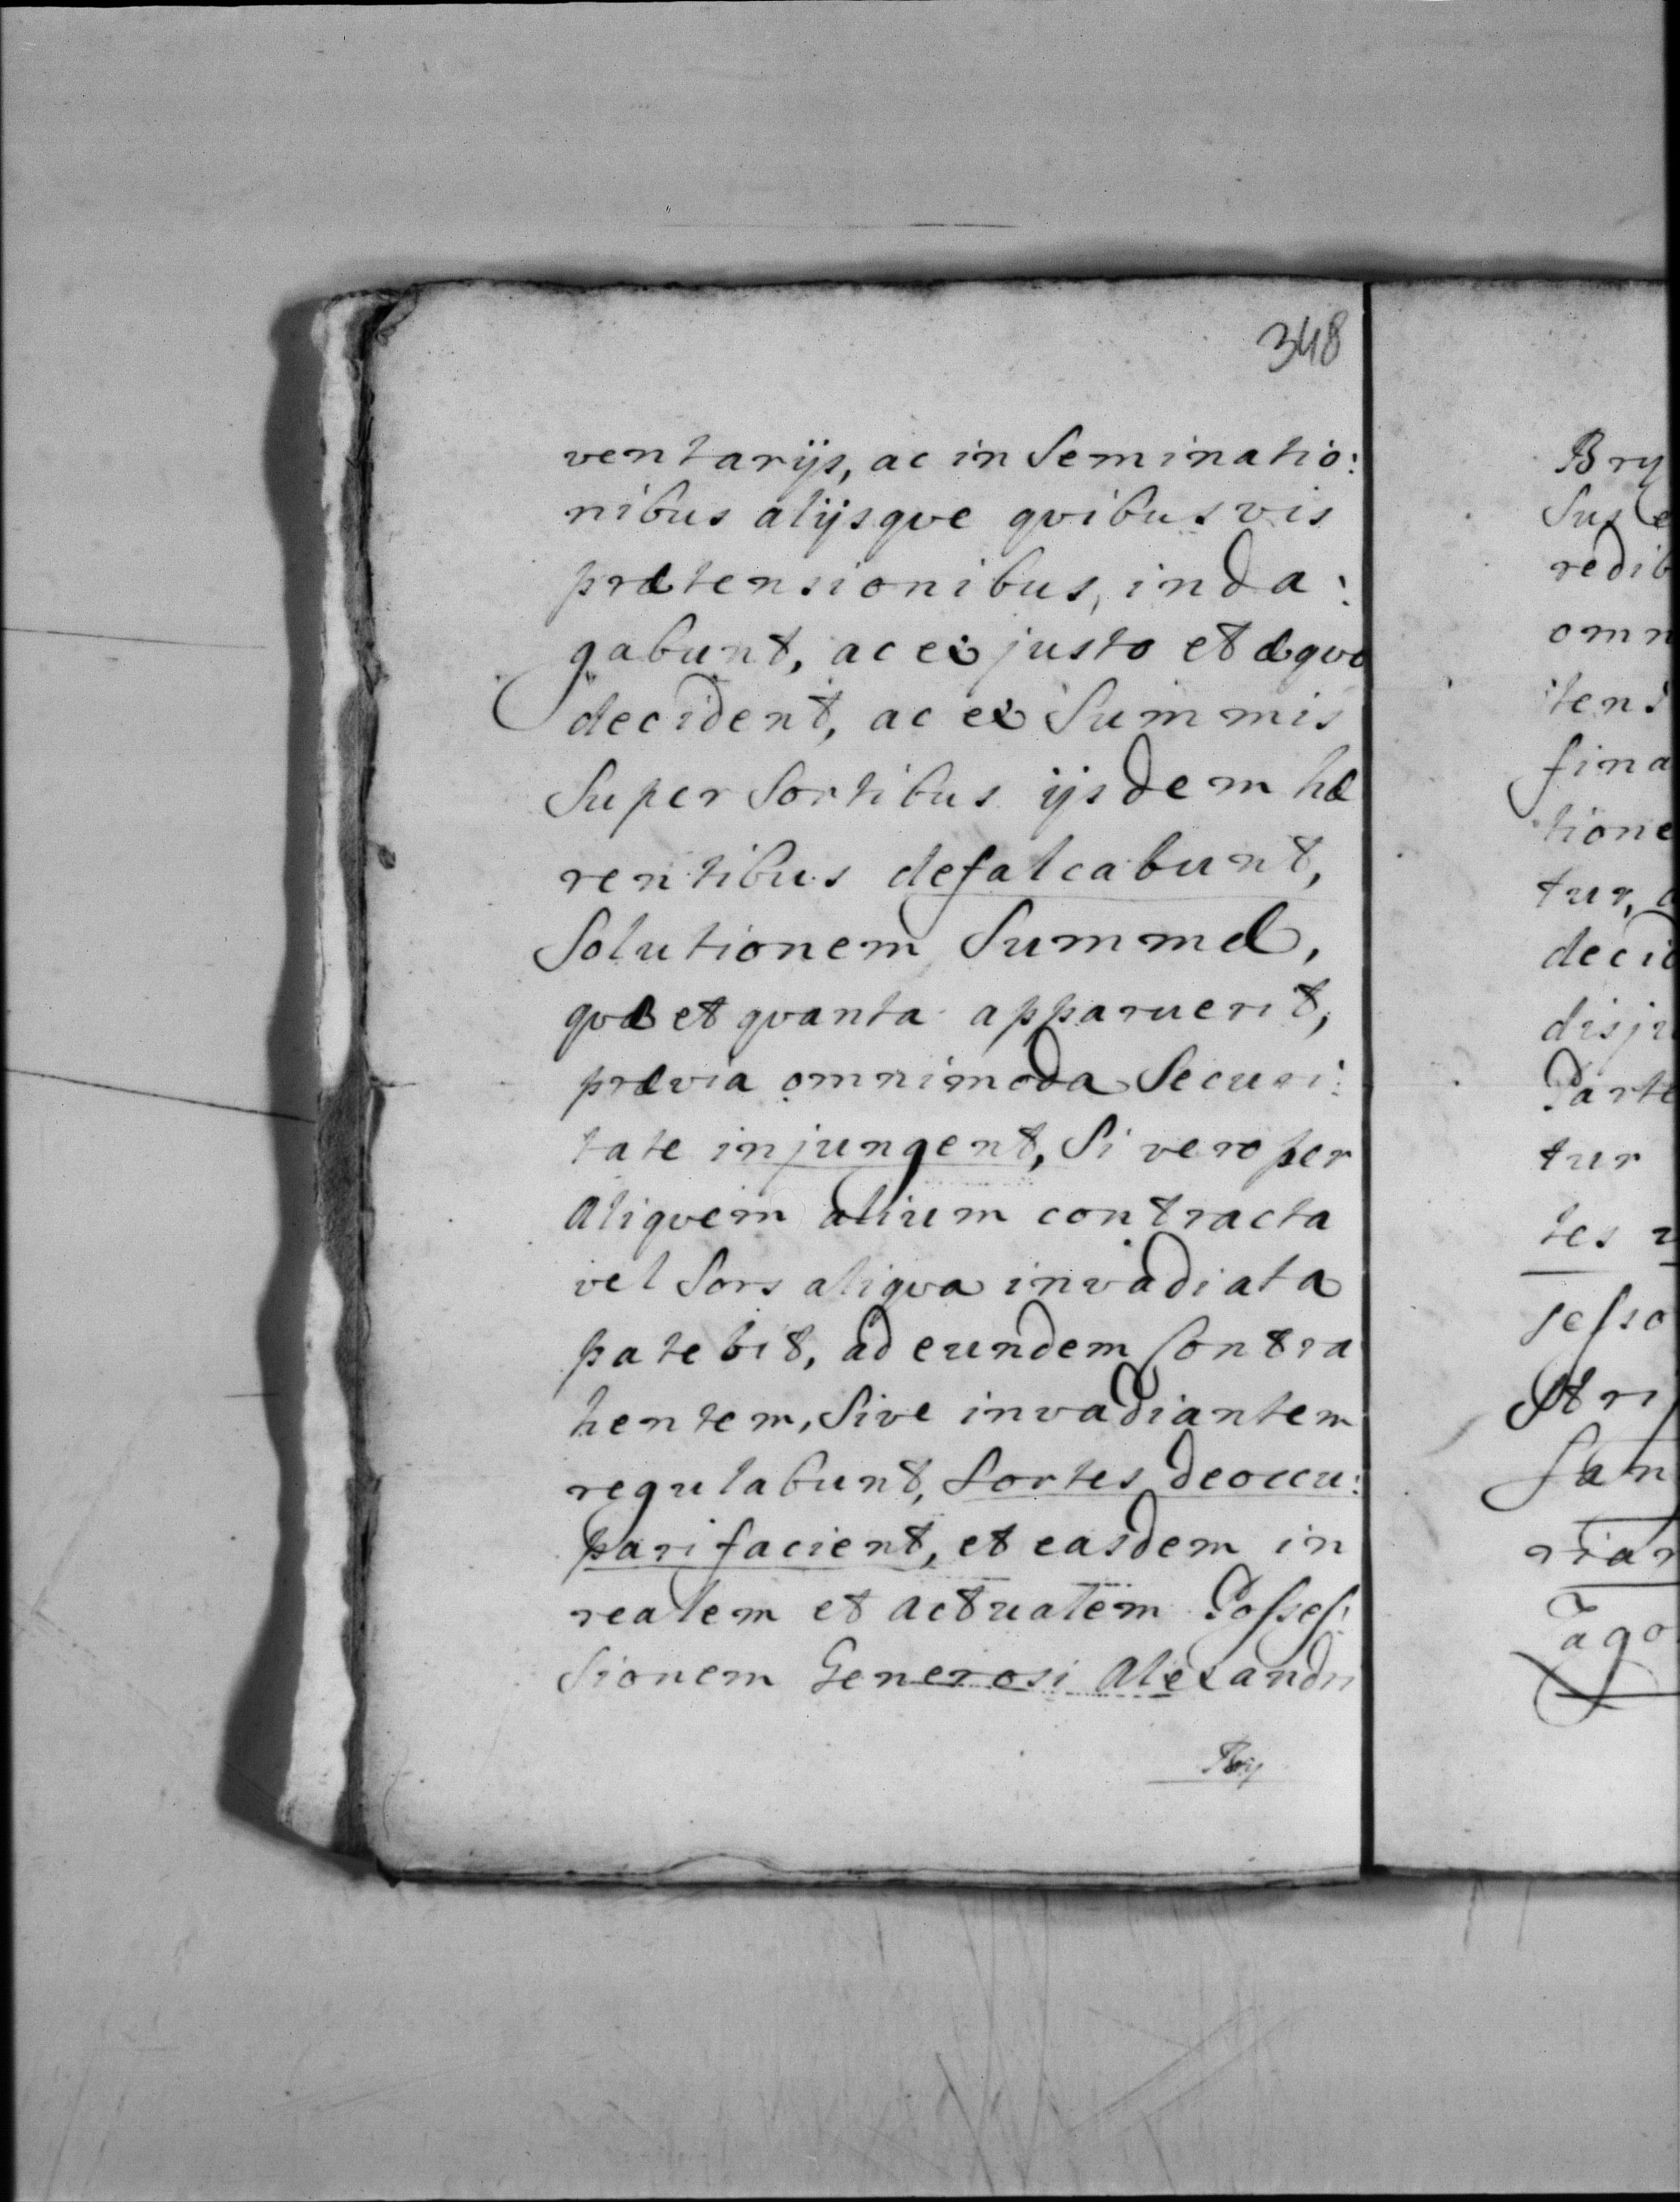 348
ventarijs, ac in Seminatio:
nibus alijsqve qvibusvis
prætensionibus, inda:
gabunt, ac ex justo et æqvo
decident, ac ex Summis
Super Sortibus ijsdem hæ
rentibus defalcabunt,
Solutionem Summæ,
qvæ et qvanta apparuerit,
prævia omnimoda Securi:
tate injungent, Si vero per
aliqvem alium contracta
vel Sors aliqva invadiata
patebit, ad eundem Contra
hentem, Sive invadiantem
regulabunt, Sortes deoccu:
pari facient, et easdem in
realem et actualem Possesˢ:
Sionem Generosi Alexandri
Bry
Bry
Sus e
redib
omn
tens
fina
tione
tur, a
decid
disju
Parte
tur
tes
sesso
Stri
San
rian
Jago